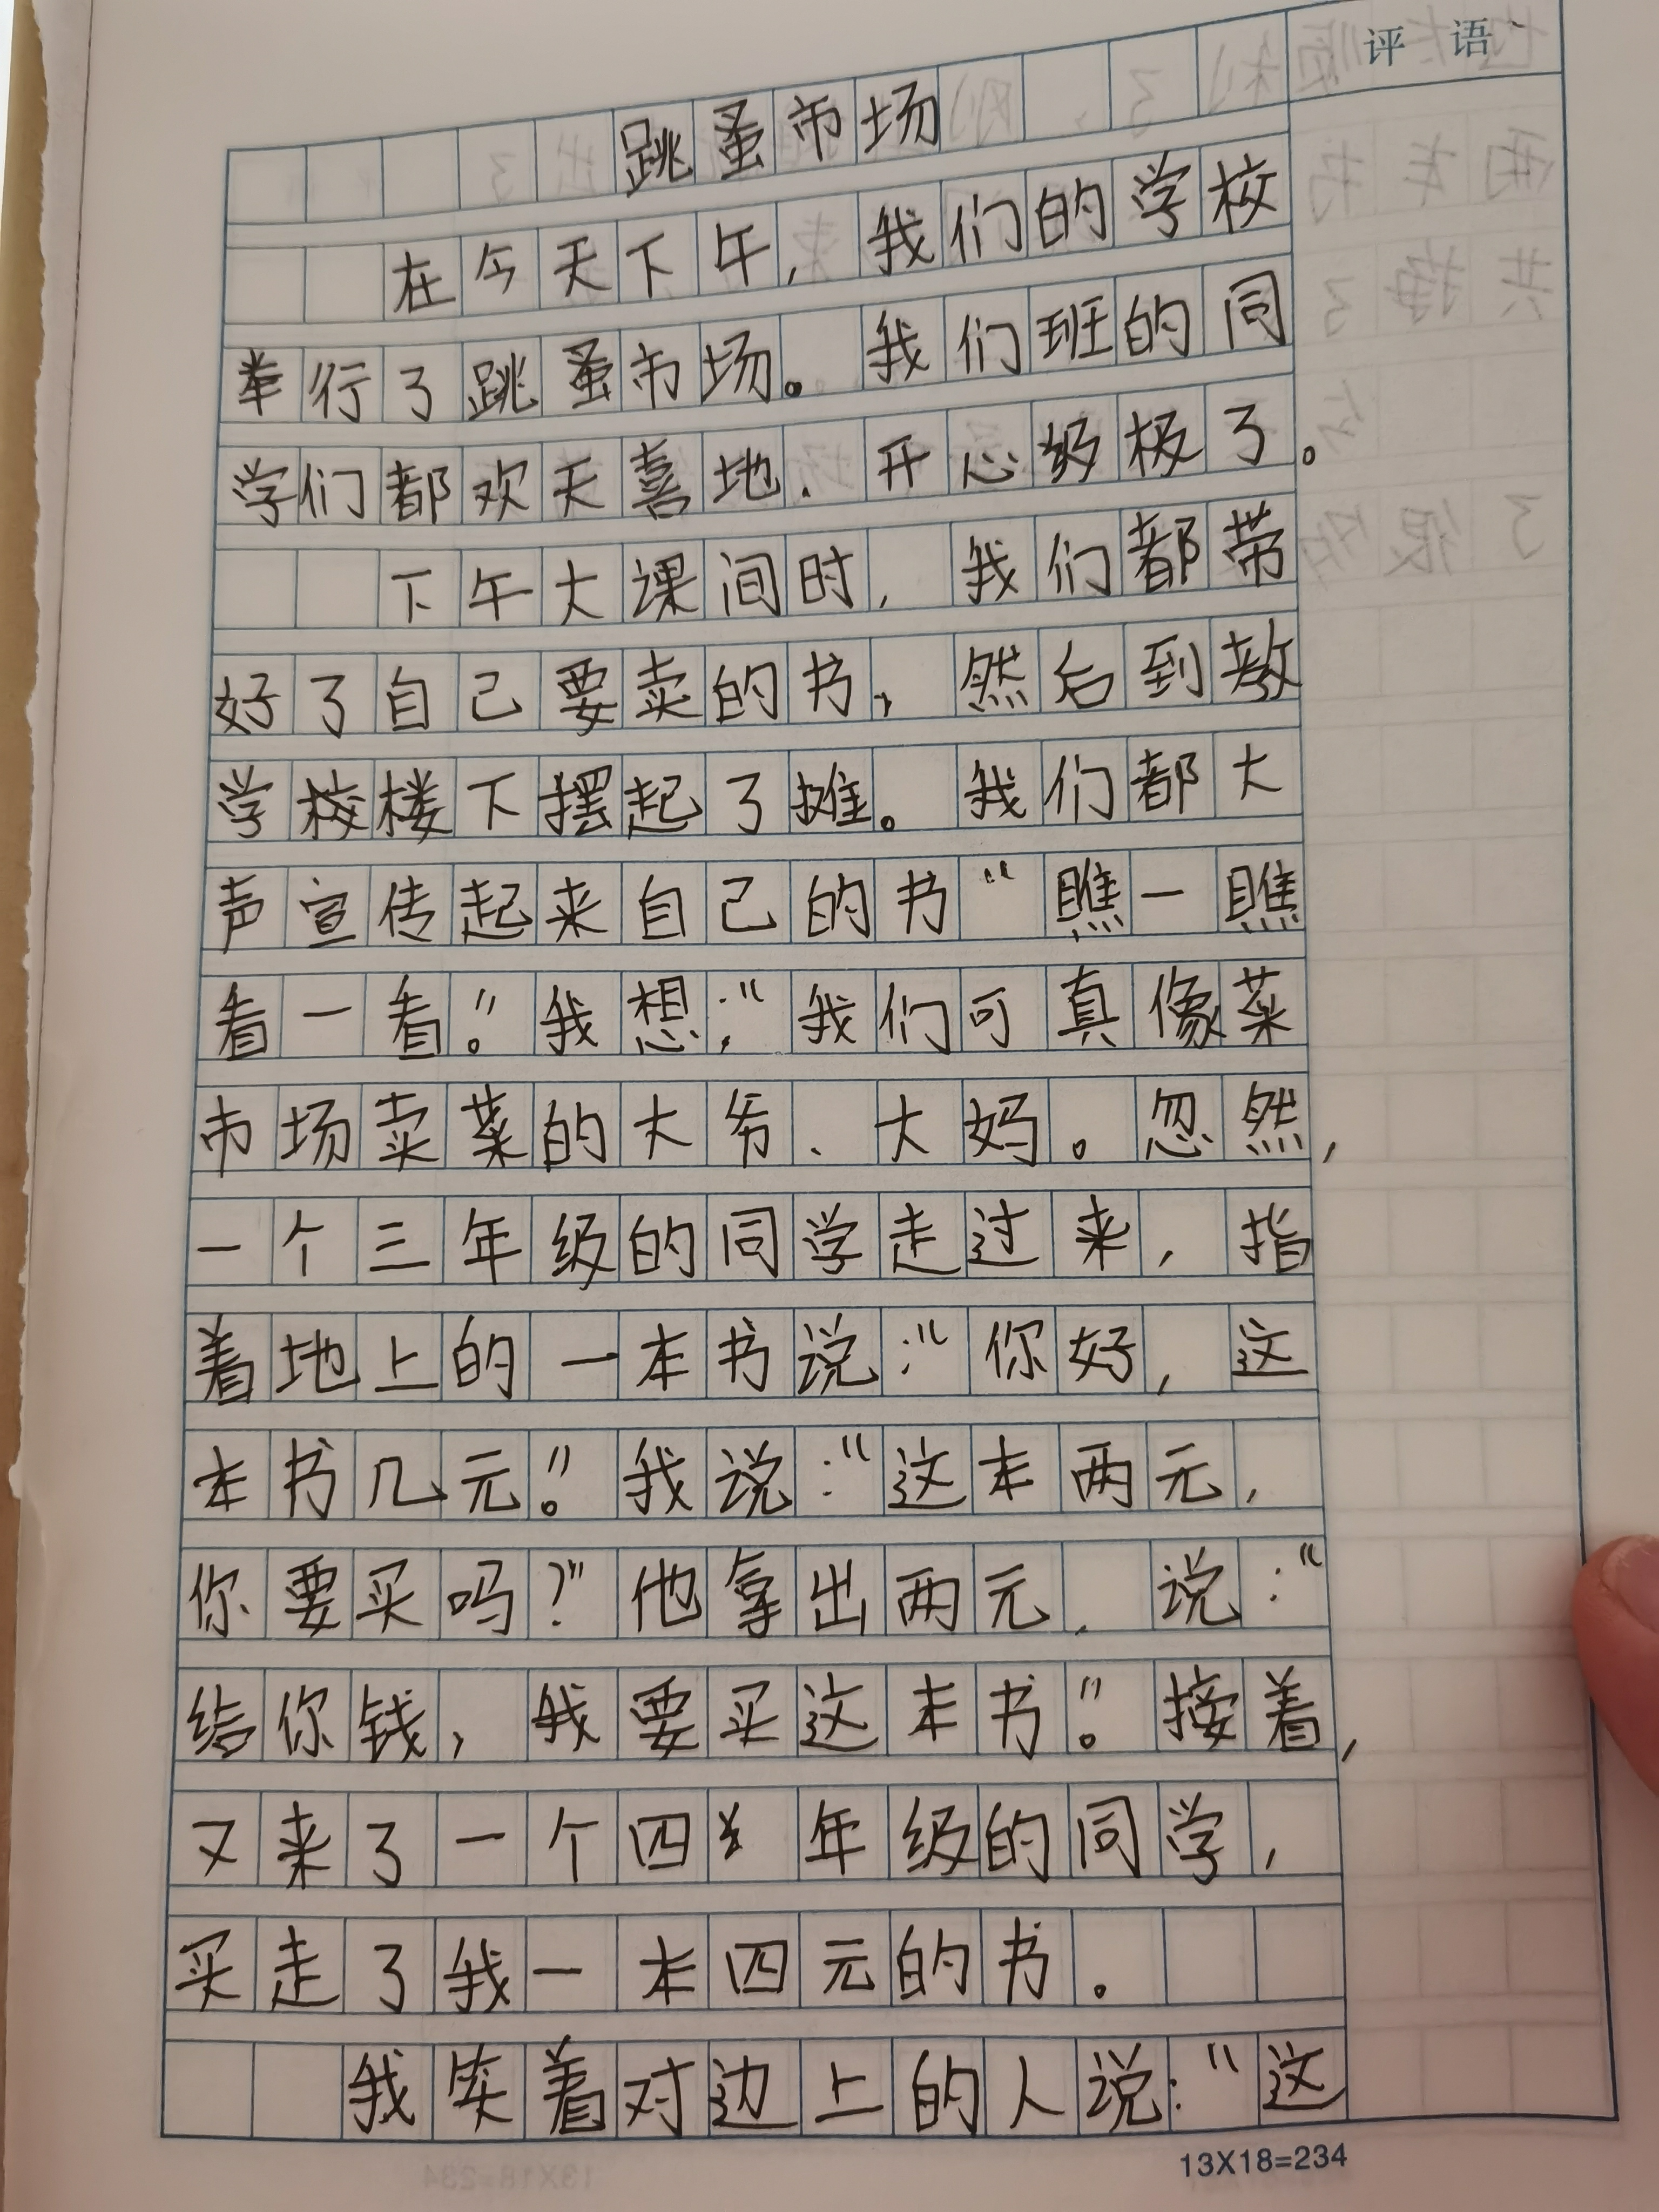 评语
跳蚤市场
在今天下午，我们的学校
举行了跳蚤市场。我们班的同
学们都欢天喜地，开心级极了。
下午大课间时，我们都带
好了自己要卖的书，然后到教
学校楼下摆起了摊。我们都大
声宣传起来自己的书“瞧一瞧
看一看。”我想：“我们可真像菜
市场卖菜的大爷、大妈。忽然，
一个三年级的同学走过来，指
着地上的一本书说：“你好，这
本书几元。”我说：“这本两元，
你要买吗？”他拿出两元，说：“
给你钱，我要买这本书。”接着，
又来了一个四年级的同学，
买走了我一本四元的书。
我笑着对边上的人说：“这
13X18=234